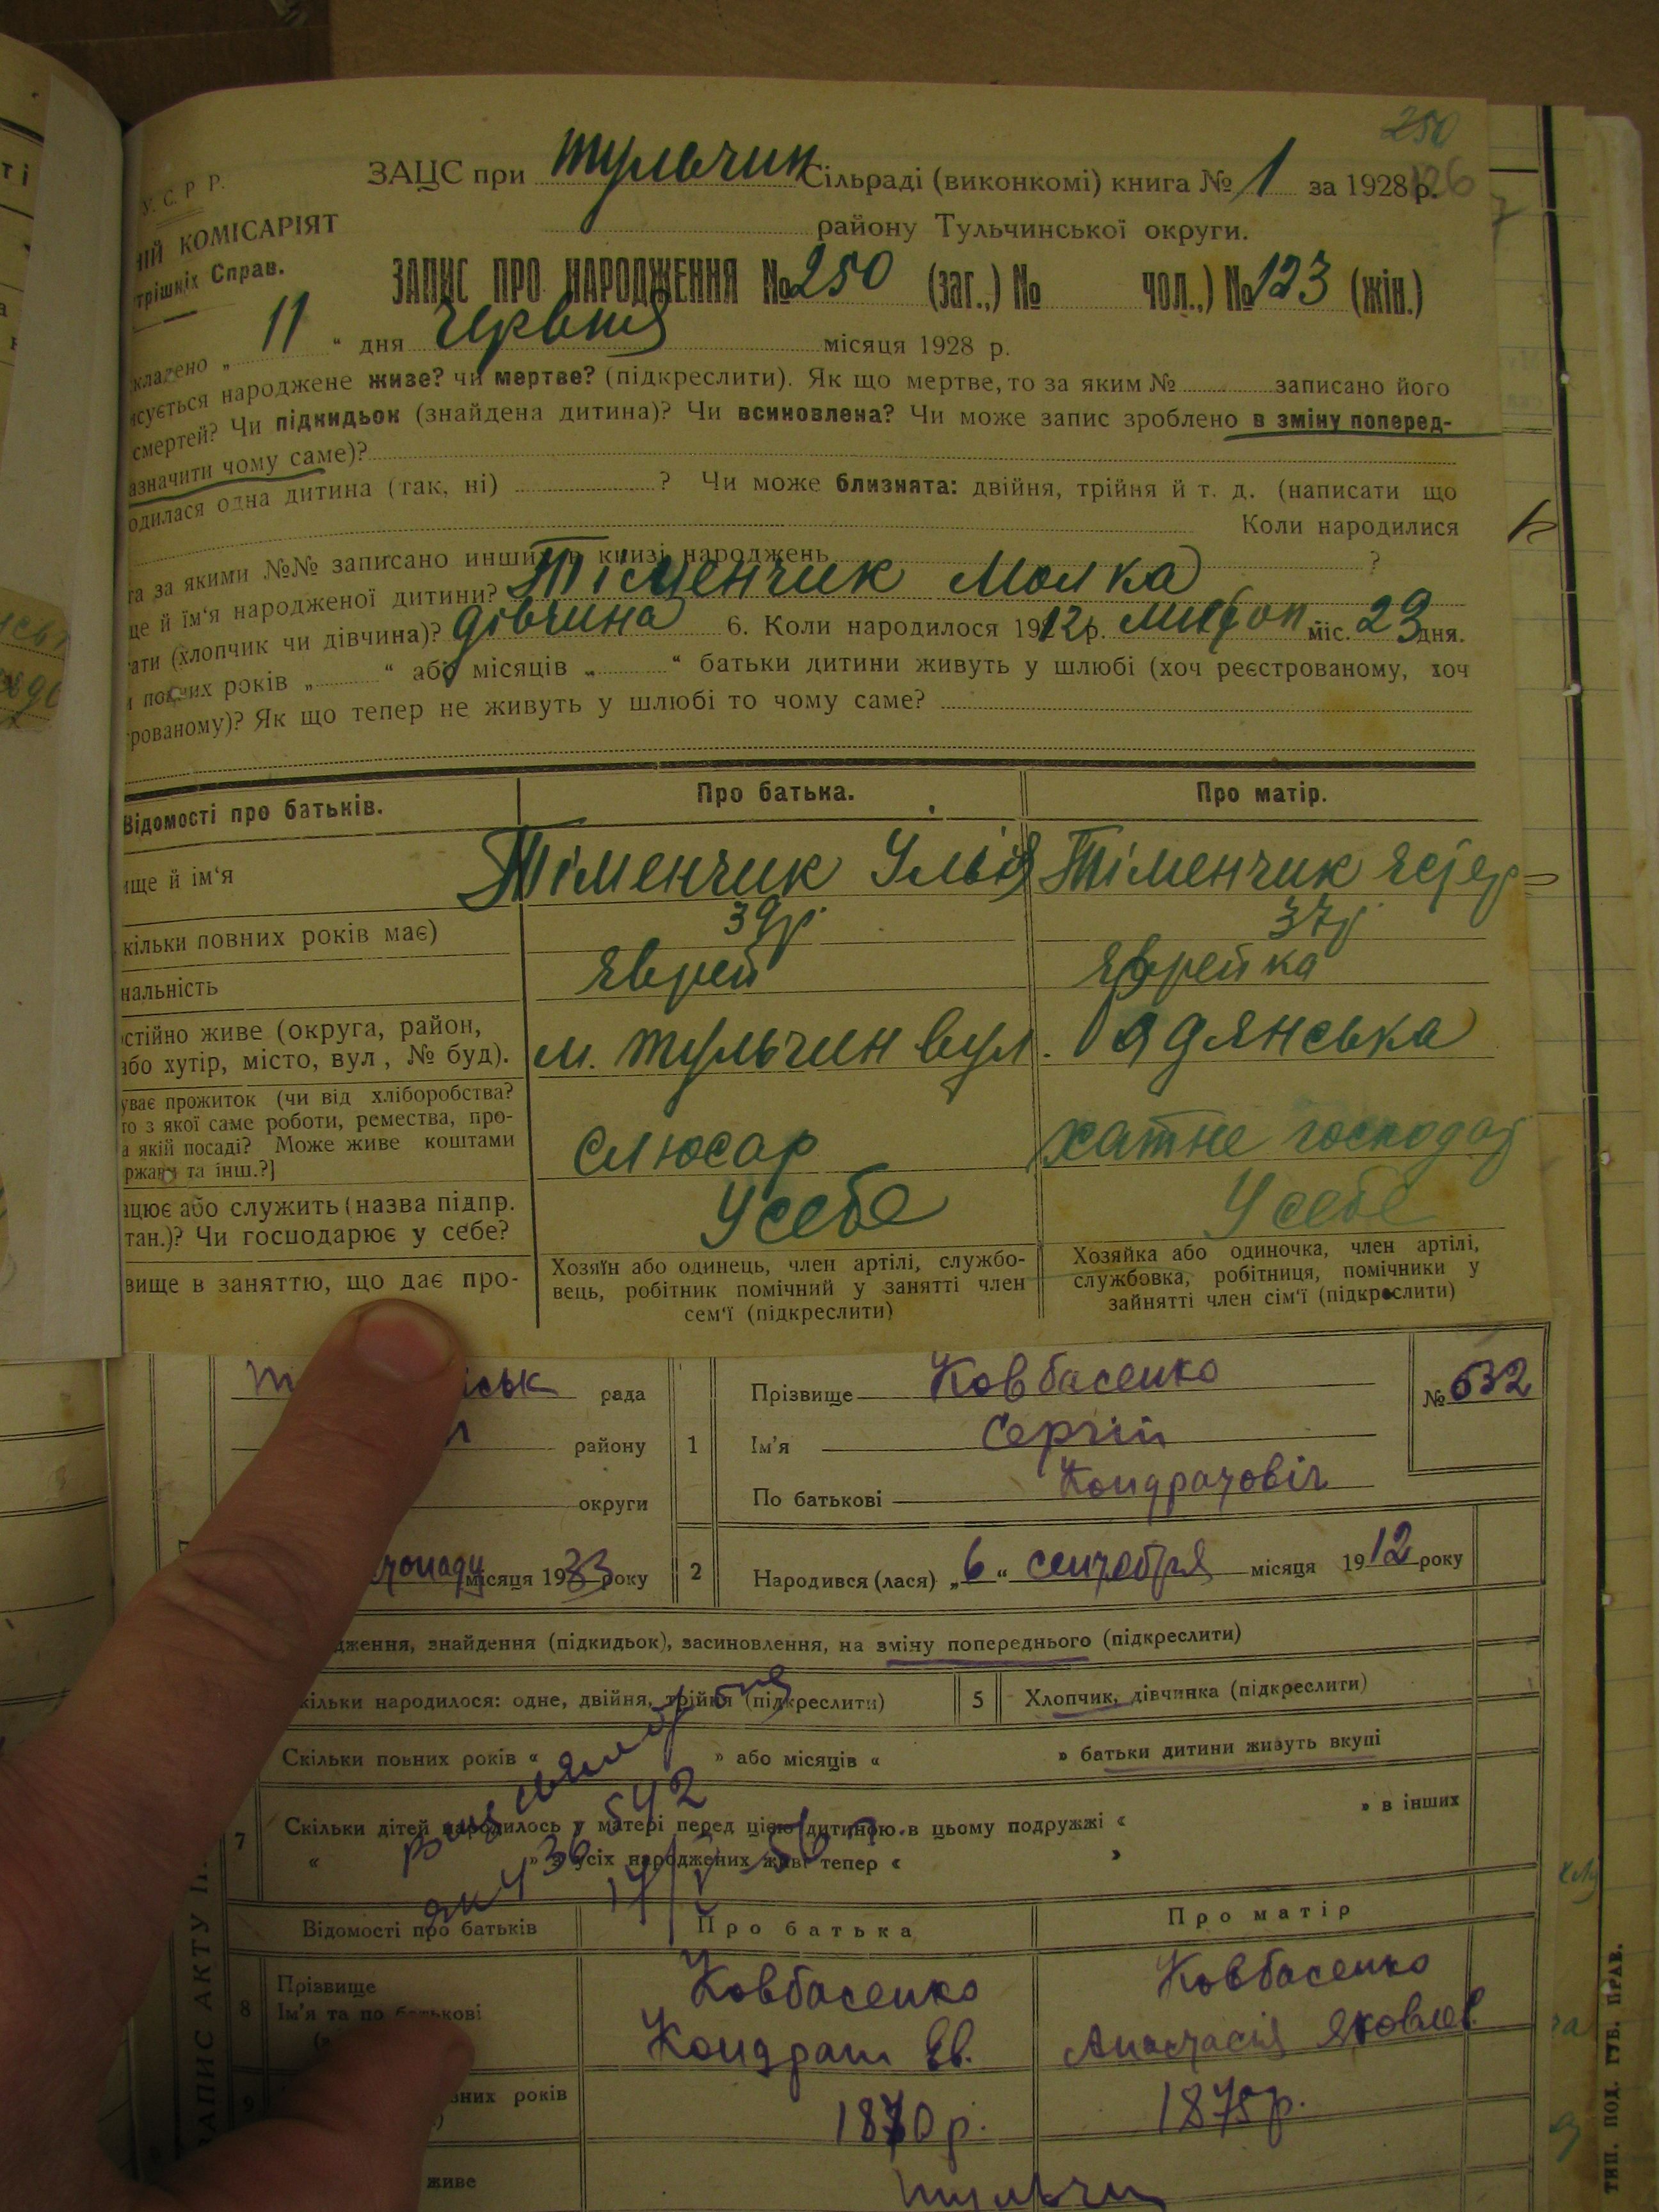 250
126
У. С. Р. Р.
ЗАЦС при Тульчин Сільраді (виконкомі) книга № 1 за 1928 р.
ИЙ КОМІСАРІЯТ
району Тульчинської округи.
трішніх Справ.
ЗАПИС ПРО НАРОДЖЕННЯ № 250 (заг.,) № чол.,) № 123 (жін.)
кладено „ 11 “ дня Червня місяця 1928 р.
исується народжене живе? чи мертве? (підкреслити). Як що мертве, то за яким № записано його
смертей? Чи підкидьок (знайдена дитина)? Чи всиновлена? Чи може запис зроблено в зміну поперед-
азначити чому саме)?
одилася одна дитина (так, ні) ? Чи може близнята: двійня, трійня й т. д. (написати що
Коли народилися
та за якими №№ записано инших в книзі народжень ?
ще й їм‘я народженої дитини? Тіменчик Молка
ати (хлопчик чи дівчина)? дівчина 6. Коли народилося 1912 р. міс. 29 дня.
и повних років „ “ або місяців „ “ батьки дитини живуть у шлюбі (хоч реєстрованому, хоч
рованому)? Як що тепер не живуть у шлюбі то чому саме?
Відомості про батьків. Про батька. Про матір.
ище й ім‘я Тіменчик Ільія Тіменчик
кільки повних років має) 39 р 37 р
нальність Яврей Яврейка
стійно живе (округа, район,
або хутір, місто, вул , № буд). м. Тульчин вул. Радянська
уває прожиток (чи від хліборобства?
то з якої саме роботи, ремества, про-
а якій посаді? Може живе коштами
ржави та інш.?] слюсар хатне господар
ацює або служить (назва підпр.
тан.)? Чи господарює у себе? У себе У себе
вище в заняттю, що дає про-
Хозяїн або одинець, член артілі, службо-
вець, робітник помічний у занятті член
сем‘ї (підкреслити)
Хозяйка або одиночка, член артілі,
службовка, робітниця, помічники у
зайнятті член сім‘ї (підкреслити)
ськ рада
району
округи
місяця 1933 року
1 Прізвище Ковбасенко
Ім’я Сергій
По батькові Кондратовіч
№ 632
2 Народився (лася) „ 6 “ сентебря місяця 1912 року
дження, знайдення (підкидьок), засиновлення, на зміну попереднього (підкреслити)
кільки народилося: одне, двійня, трійня (підкреслити) 5 Хлопчик, дівчинка (підкреслити)
Скільки повних років « » або місяців « » батьки дитини живуть вкупі
7 Скільки дітей народилось у матері перед цією дитиною в цьому подружжі « » в інших
« » з усіх народжених живі тепер « »
Відомості про батьків Про батька Про матір
8 Прізвище
Ім’я та по батькові
Ковбасенко
Кондрат Єв.
Ковбасенко
Анастасія Яковлев.
9 вних років 1870 р. 1875 р.
живе Тульчин
ЗАПИС АКТУ
ТИП. ПОД. ГУБ. ПРАВ.